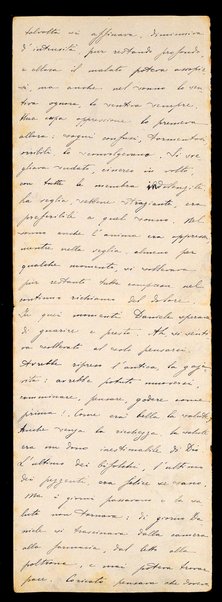 talvolta si affinava, diminuiva
d'intensità pur restando profondo
e allora il malato poteva assopir
si, ma anche nel sonno lo sen
tiva ognora, lo sentiva sempre.
Una cupa oppressione lo premeva
allora: sogni confusi, tormentosi
orribili lo sconvolgevano. Si sve
gliava sudato, cinereo in volto,
con tutte le membra
la veglia, sebbene straziante, era
preferibile a quel sonno. Nel
sonno anche l'anima era oppressa
mentre nella veglia, almeno per
qualche momento, si sollevava
pur restando tutto compreso nel
continuo richiamo del dolore.
In quei momenti Daniele sperava
di guarire e presto. Ah si sentì
va sollevato al solo pensarci.
Avrebbe ripreso l'antica, la gaja
vita: avrebbe potuto muoversi,
camminare, pensare, godere come
prima! Come era bella la salute!
Anche senza la ricchezza, la salute
era un dono inestimabile di Dio.
L'ultimo dei bifolchi, l'ultimo
dei pezzenti, era felice se sano.
Ma i giorni passavano e la sa
lute non tornava: di giorno Da
niele si trascinava dalla camera
alla farmacia, dal letto alla
poltrona, e mai poteva trovar
pace. Coricato pensava che doveva